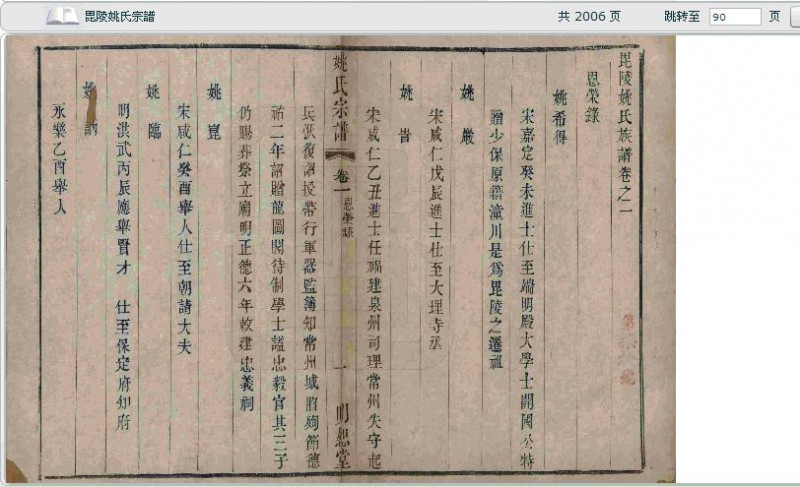 毘陵姚氏宗譜
共 2006 页
跳转至 90 页
毘陵姚氏族譜卷之一
恩榮錄
姚希得
宋嘉定癸未進士仕至端明殿大學士開國公特
贈少保原籍潼川是爲毘陵之遷祖
姚嚴
宋咸仁戊辰進士仕至大理寺丞
姚訔
宋咸仁乙丑進士任福建泉州司理常州失守起
姚氏宗譜
卷一
恩榮錄
一
明恕堂
兵恢復詔授帶行軍器監簿知常州城陷殉節德
祐二年詔贈龍圖閣待制學士諡忠毅官其三子
仍賜葬祭立廟明正德六年敕建忠義祠
姚崑
宋咸仁癸酉舉人仕至朝請大夫
姚臨
明洪武丙辰應舉賢才 仕至保定府知府
姚
永樂乙酉舉人